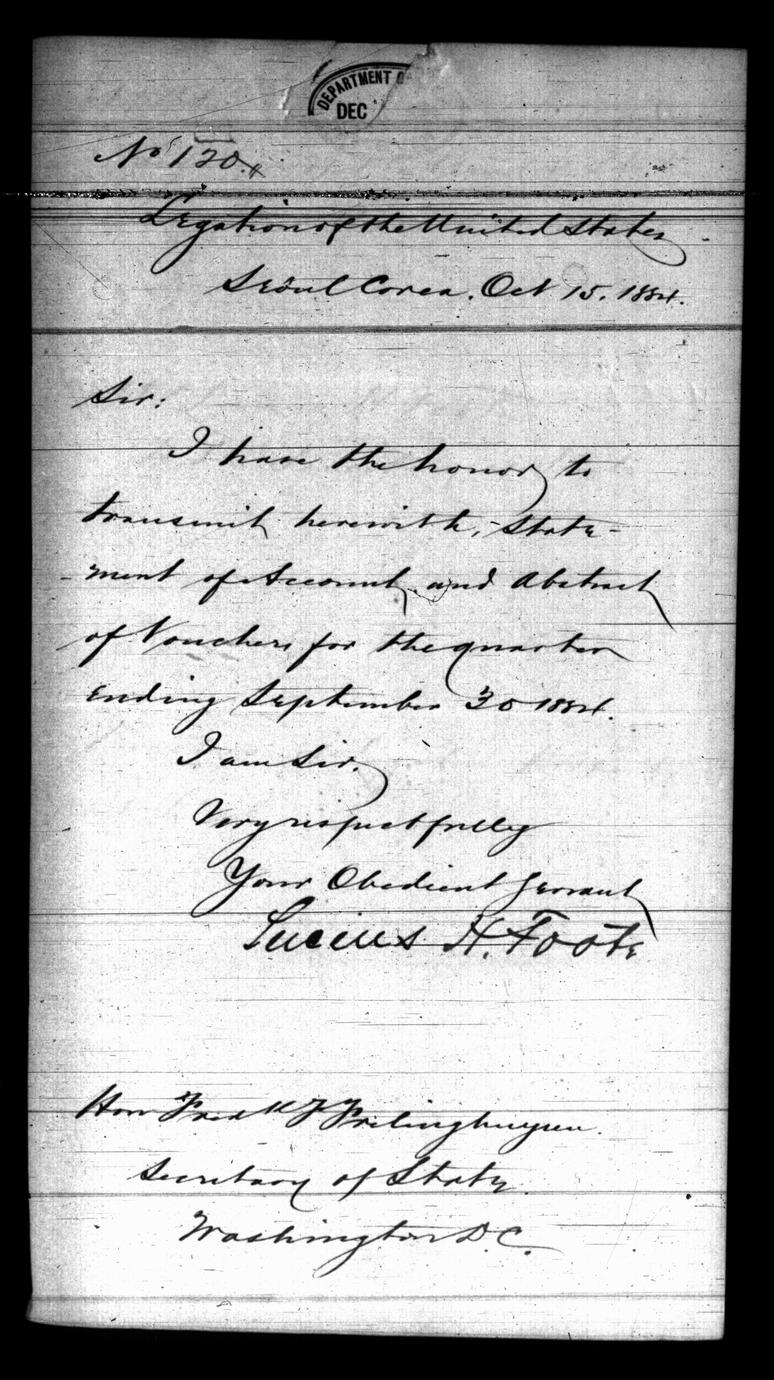 DEPARTMENT O
DEC
No 120.
Legation of the United States
Seoul Corea. Oct 15. 1884.
Sir:
I have the honor to
transmit herewith, State-
-ment of Account, and Abstract
of Vouchers for the quarter
ending September 30 1884.
I am Sir.
Very respectfully
Your Obedient Servant
Lucius H. Foote
Hon Fredk F Frelinghuysen.
Secretary of State
Washington D.C.